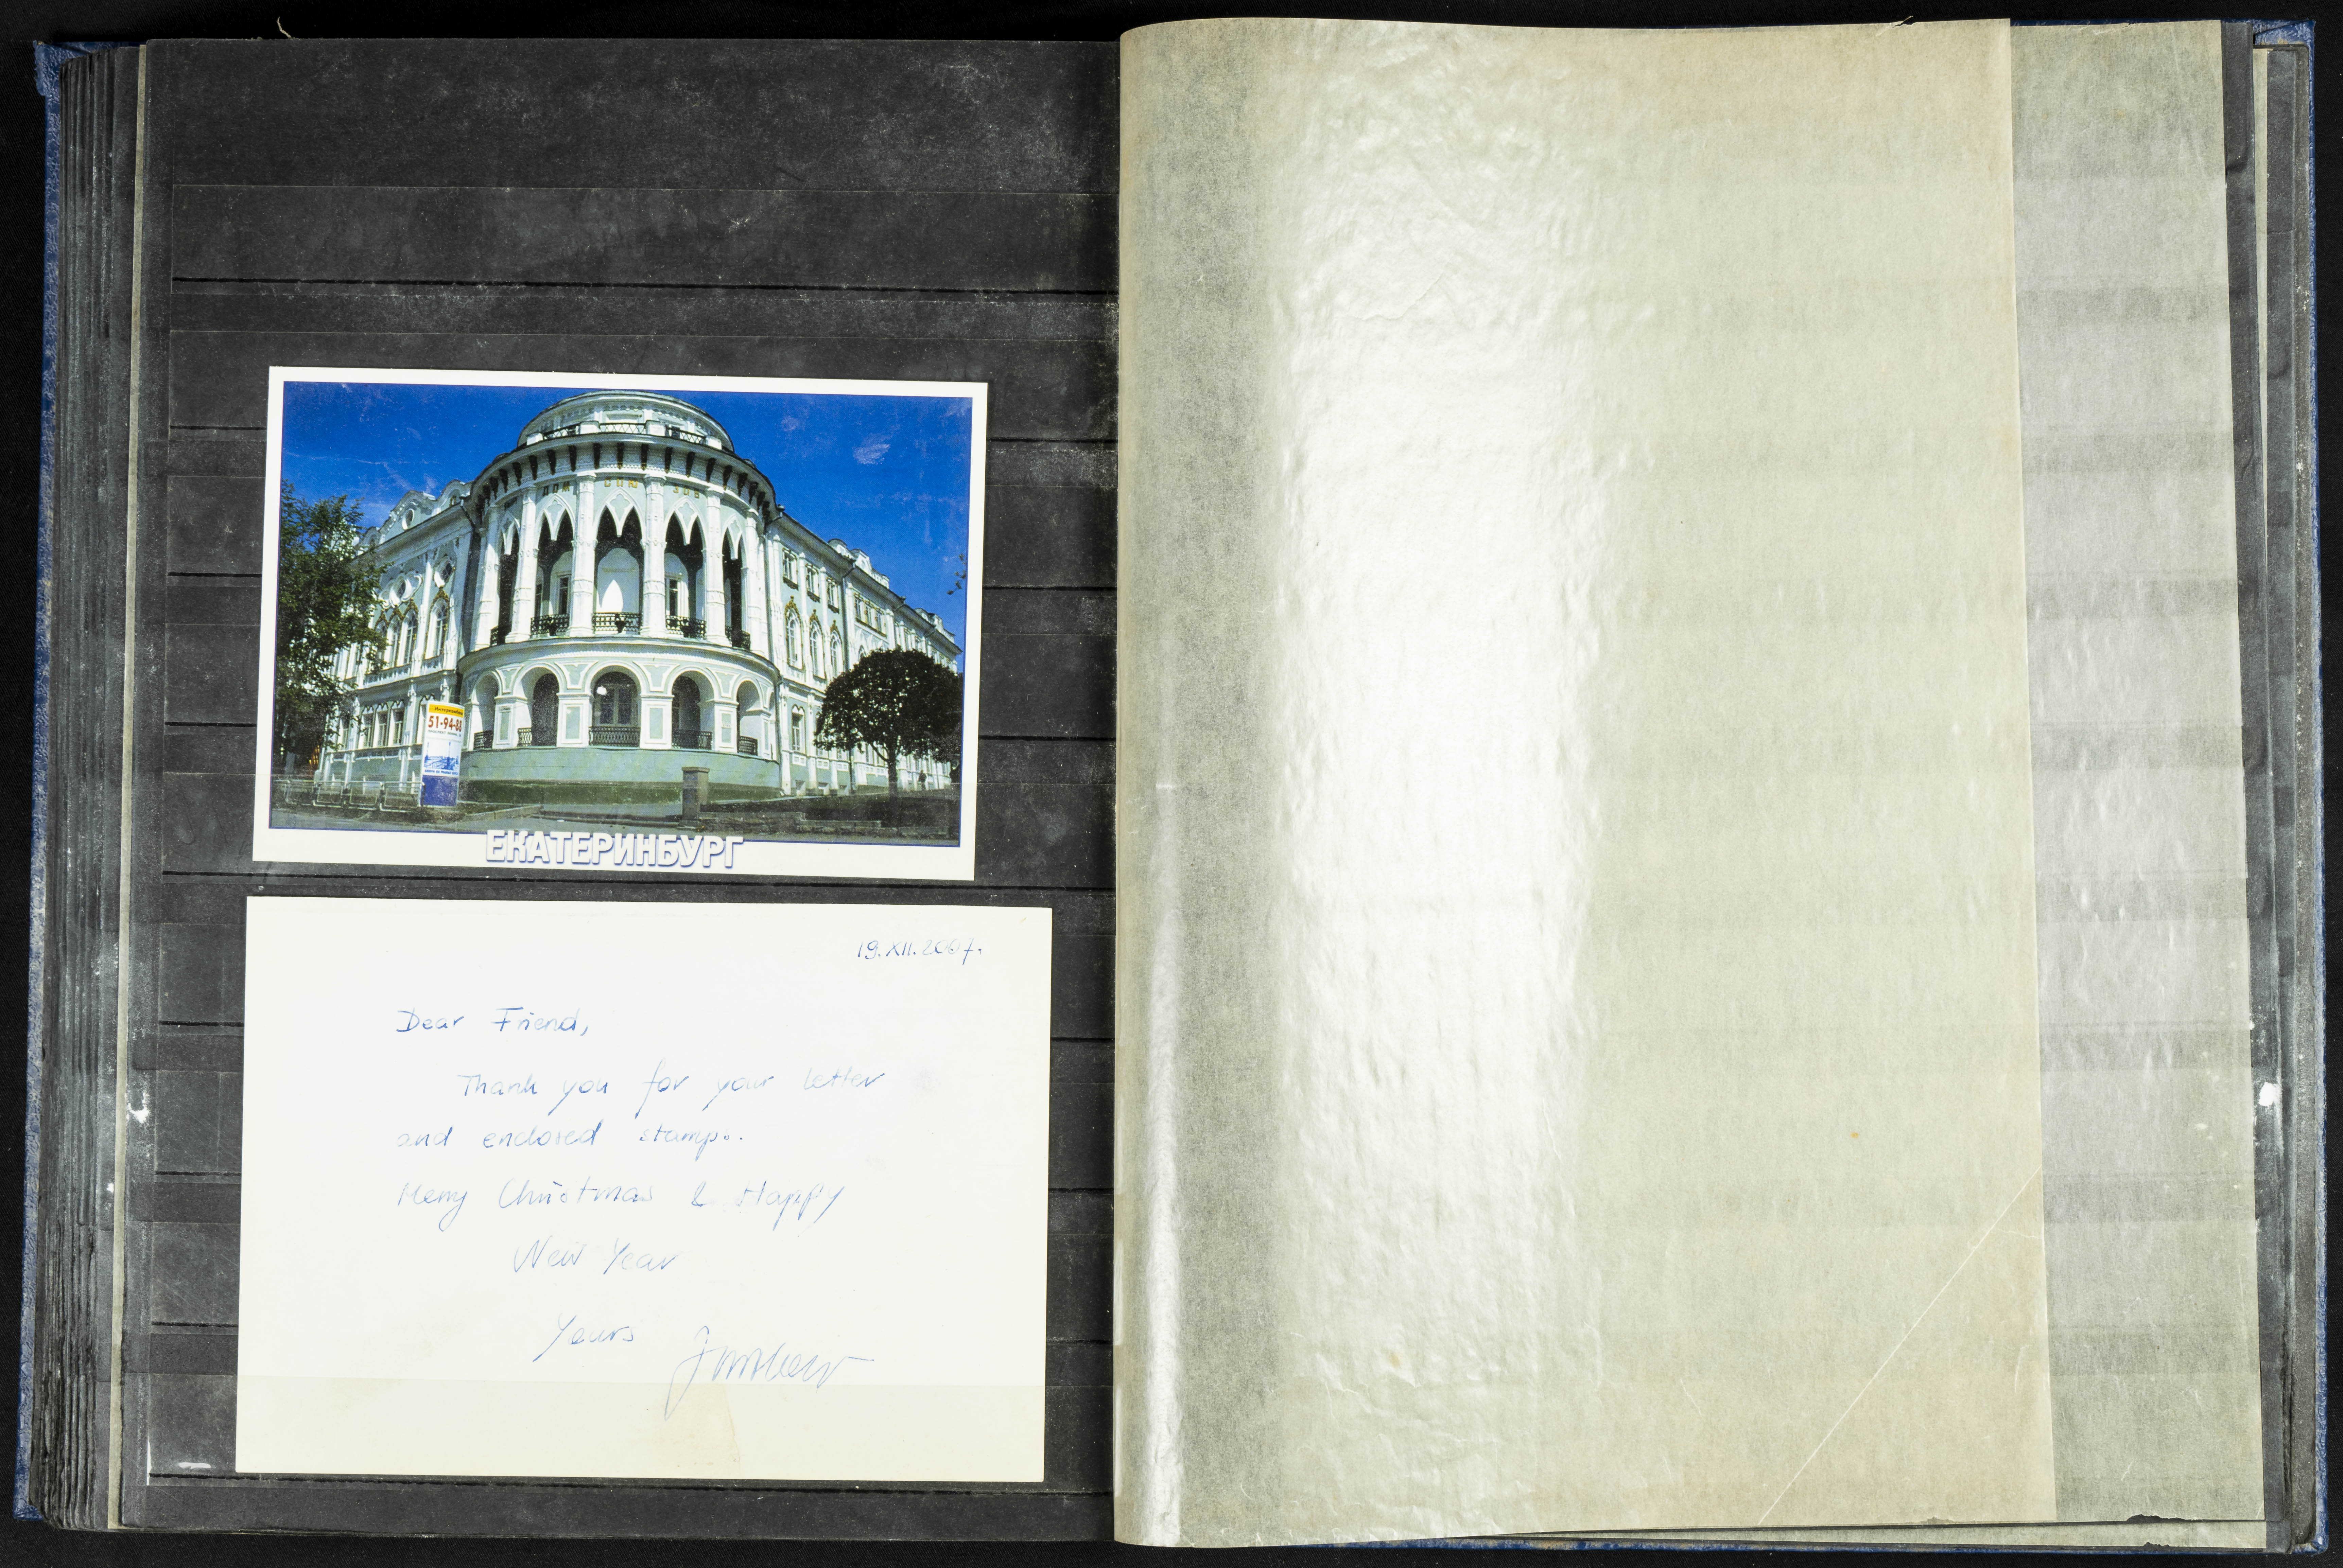 ДОМ СОЮЗОВ
51-94-8
ЕКАТЕРИНБУРГ
19.XII.2007.
Dear Friend,
Thank you for your letter
and enclosed stamps.
Merry Christmas & Happy
New Year
Yours